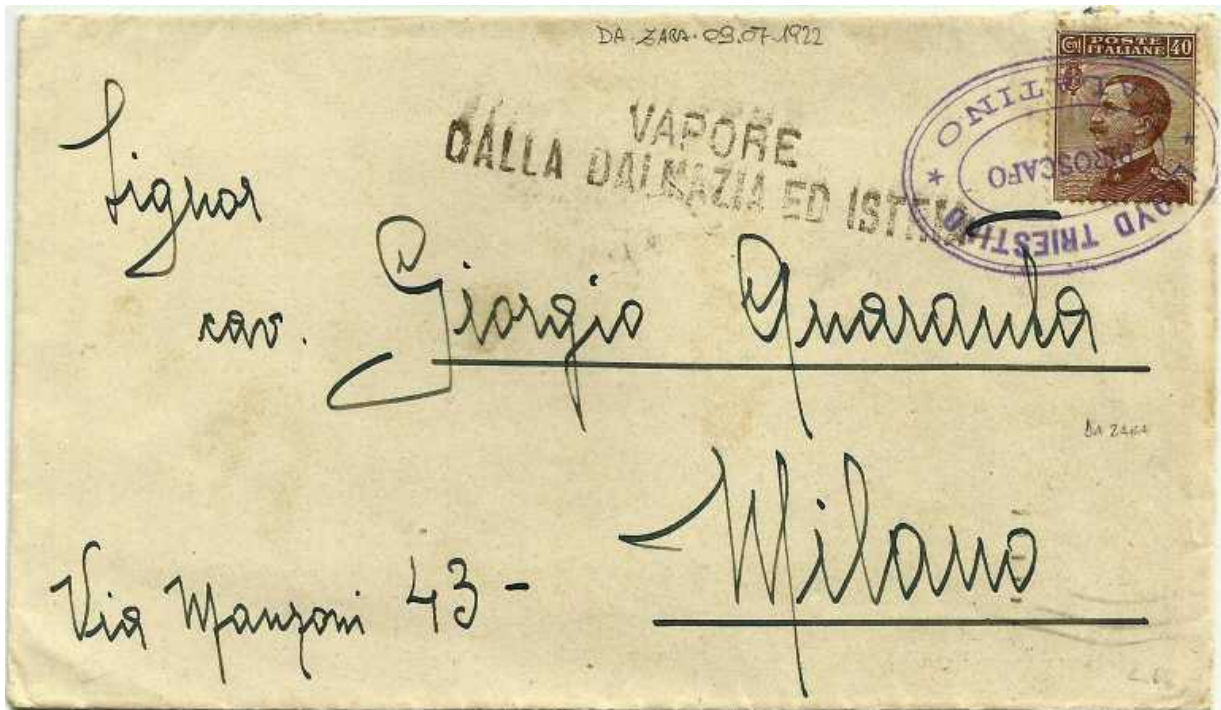 DA ZARA 09.07.1922
Cmi POSTE 40
ITALIANE
VAPORE
DALLA DALMAZIA ED ISTRIA
LLOYD TRIESTINO
PIROSCAFO
Signor
cav. Giorgio Quaranta
DA ZARA
Milano
Via Manzoni 43 -